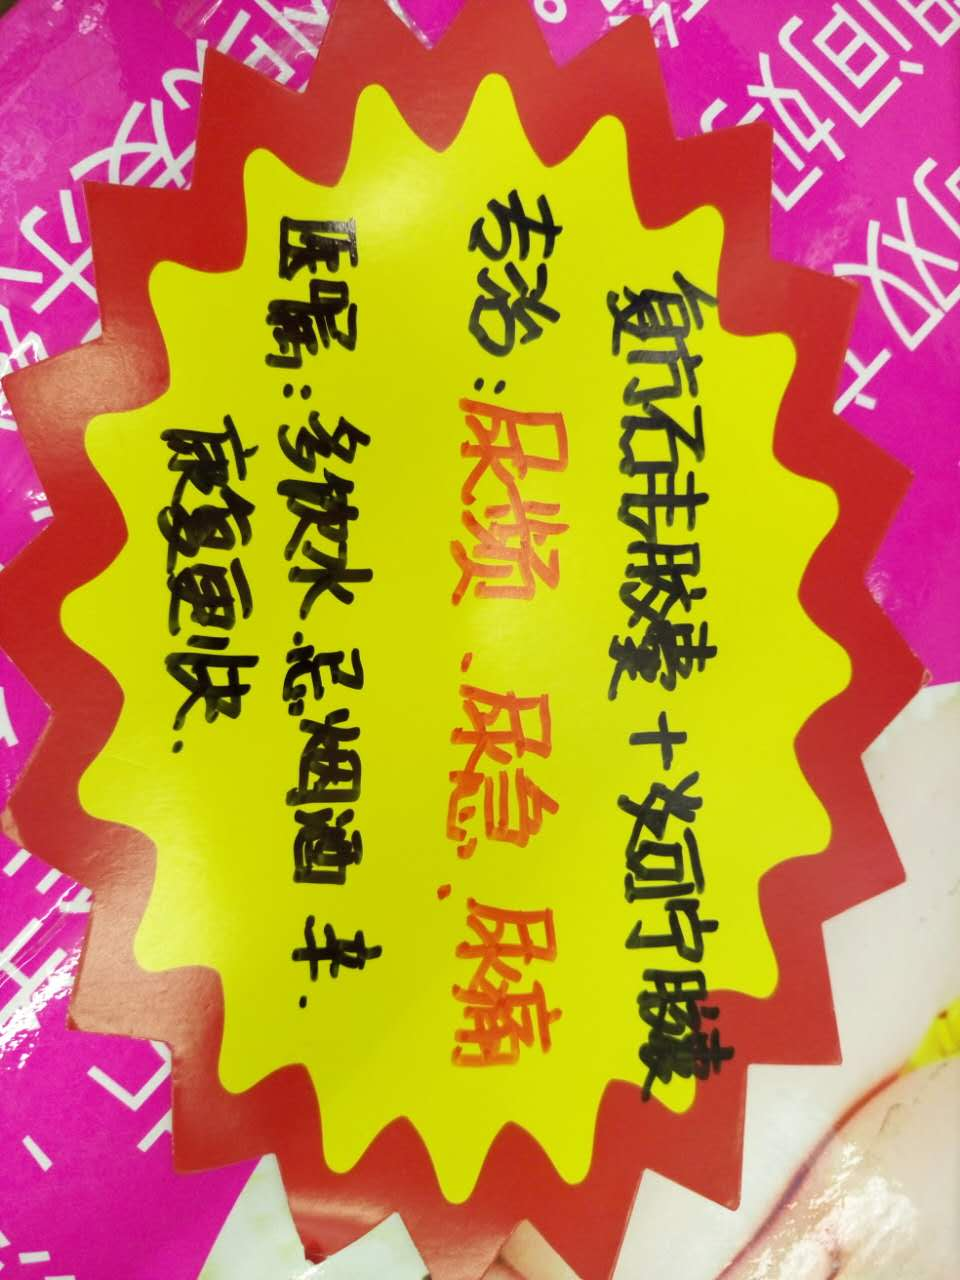 复方石韦胶囊+妇可宁胶囊
专治:尿频、尿急、尿痛
医嘱:多饮水.忌烟酒 辛.
康复更快.